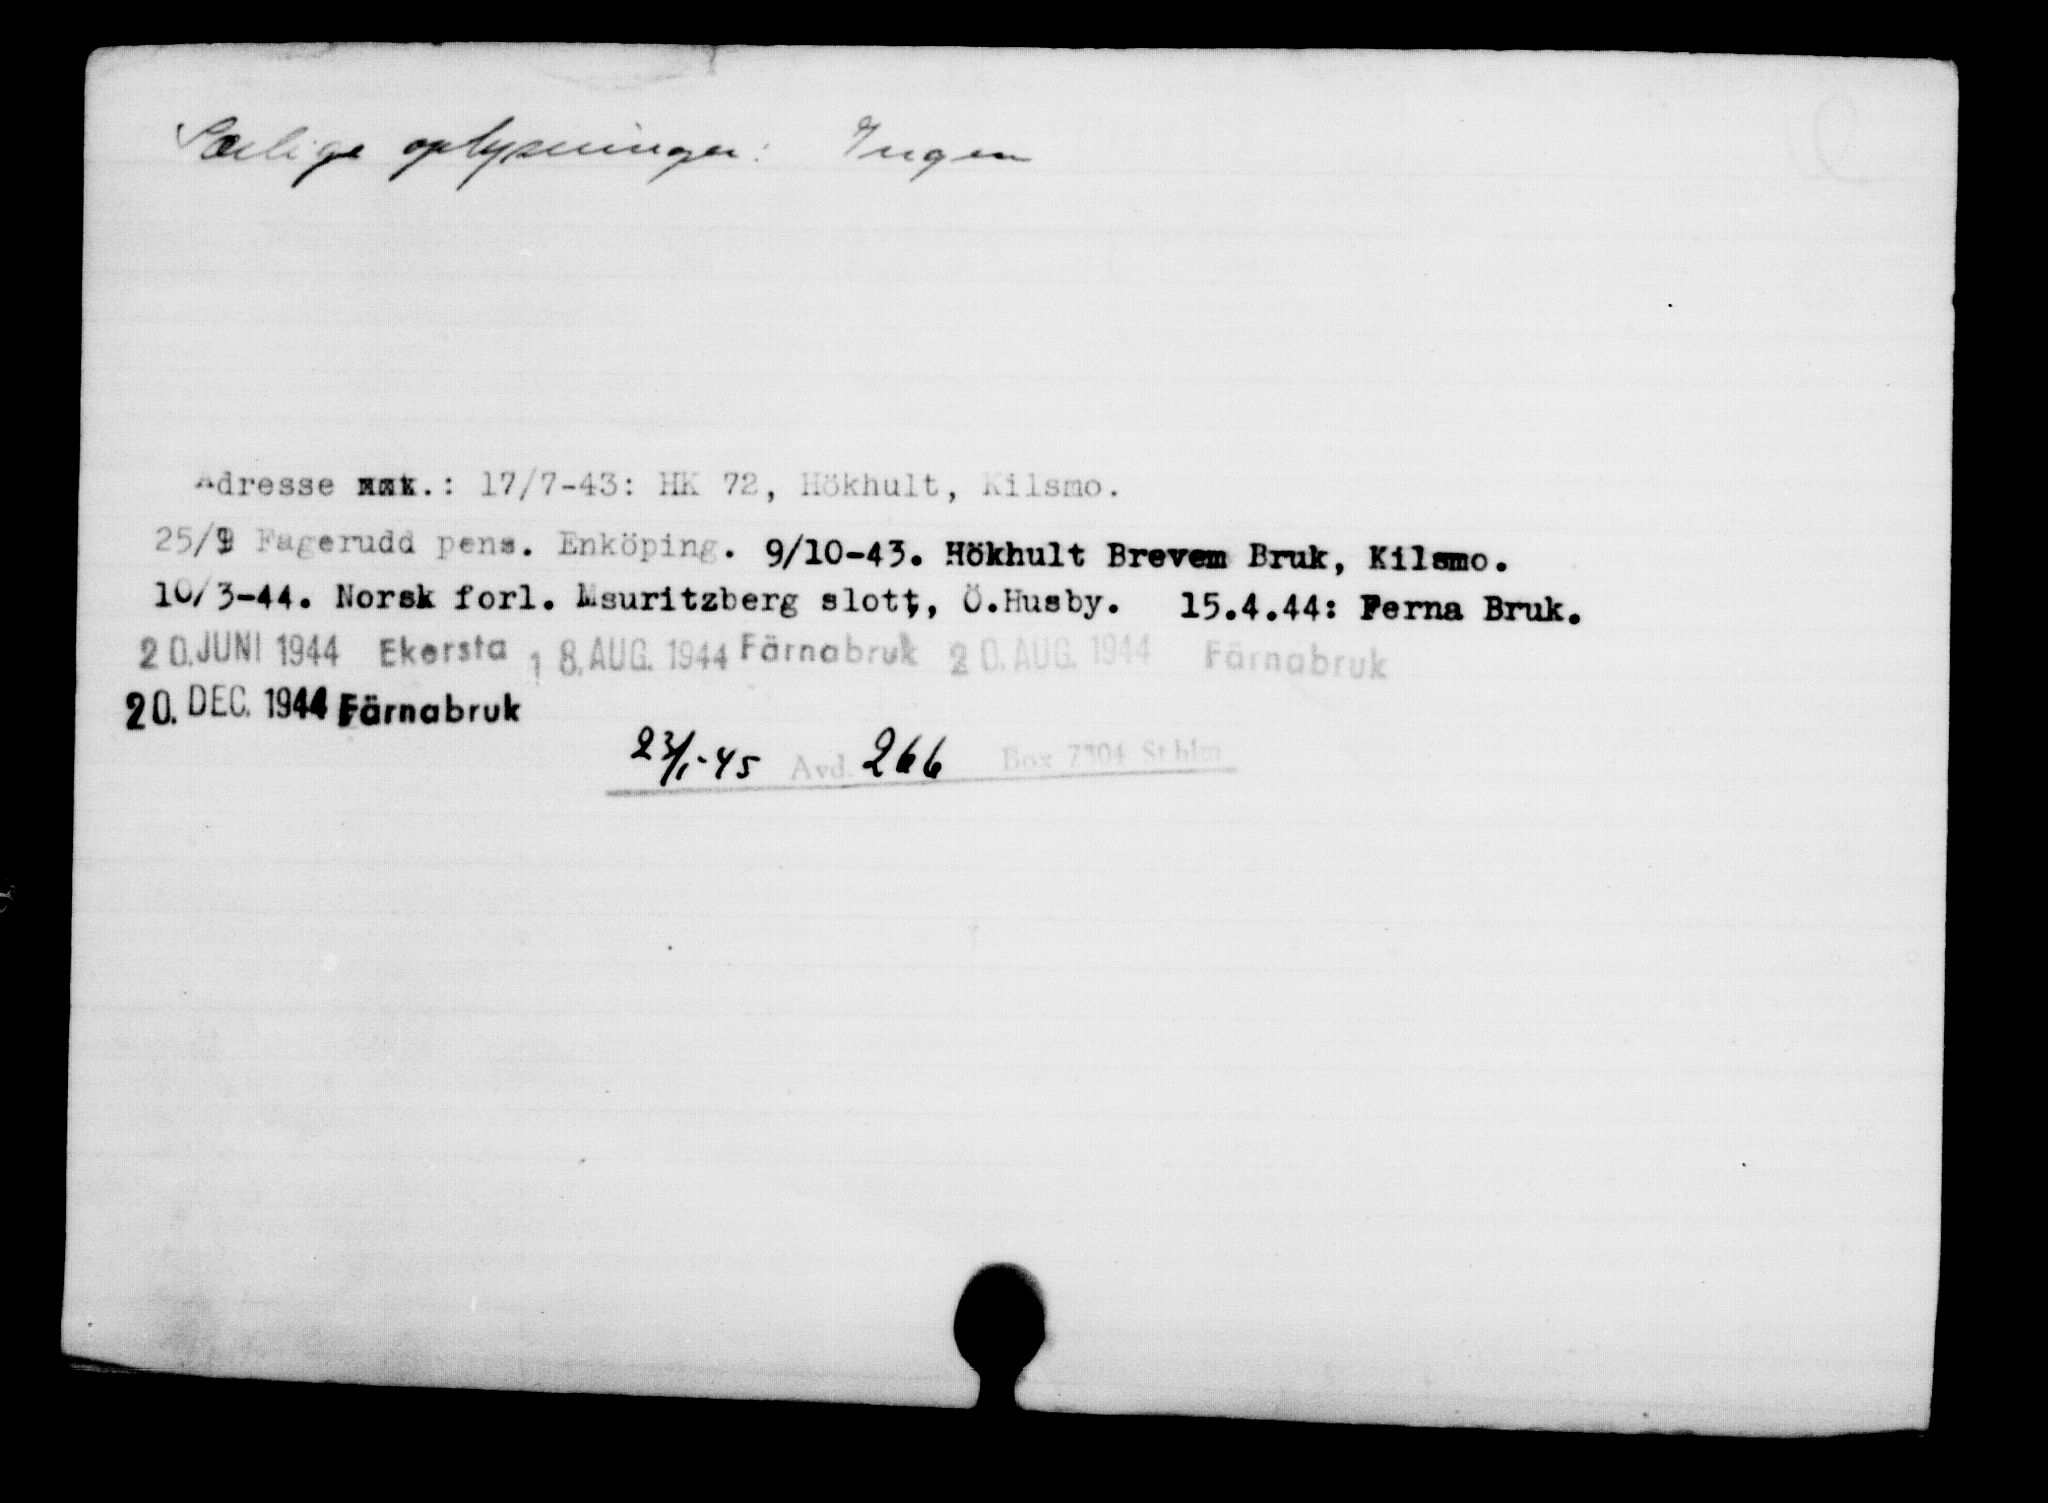 Særlige oplysninger: Ingen
Adresse xxx.: 17/7-43: HK 72, Hökhult, Kilsmo.
25/9 Fagerudd pens. Enköping. 9/10-43. Hökhult Brevem Bruk, Kilsmo.
10/3-44. Norsk forl. Msuritzberg slott, Ö.Husby. 15.4.44: Ferna Bruk.
20. JUNI 1944 Ekersta 18. AUG. 1944 Färnabruk 20. AUG. 1944 Färnabruk
20. DEC. 1944 Färnabruk
23/1-45 Avd. 266 Box 7304 Sthlm